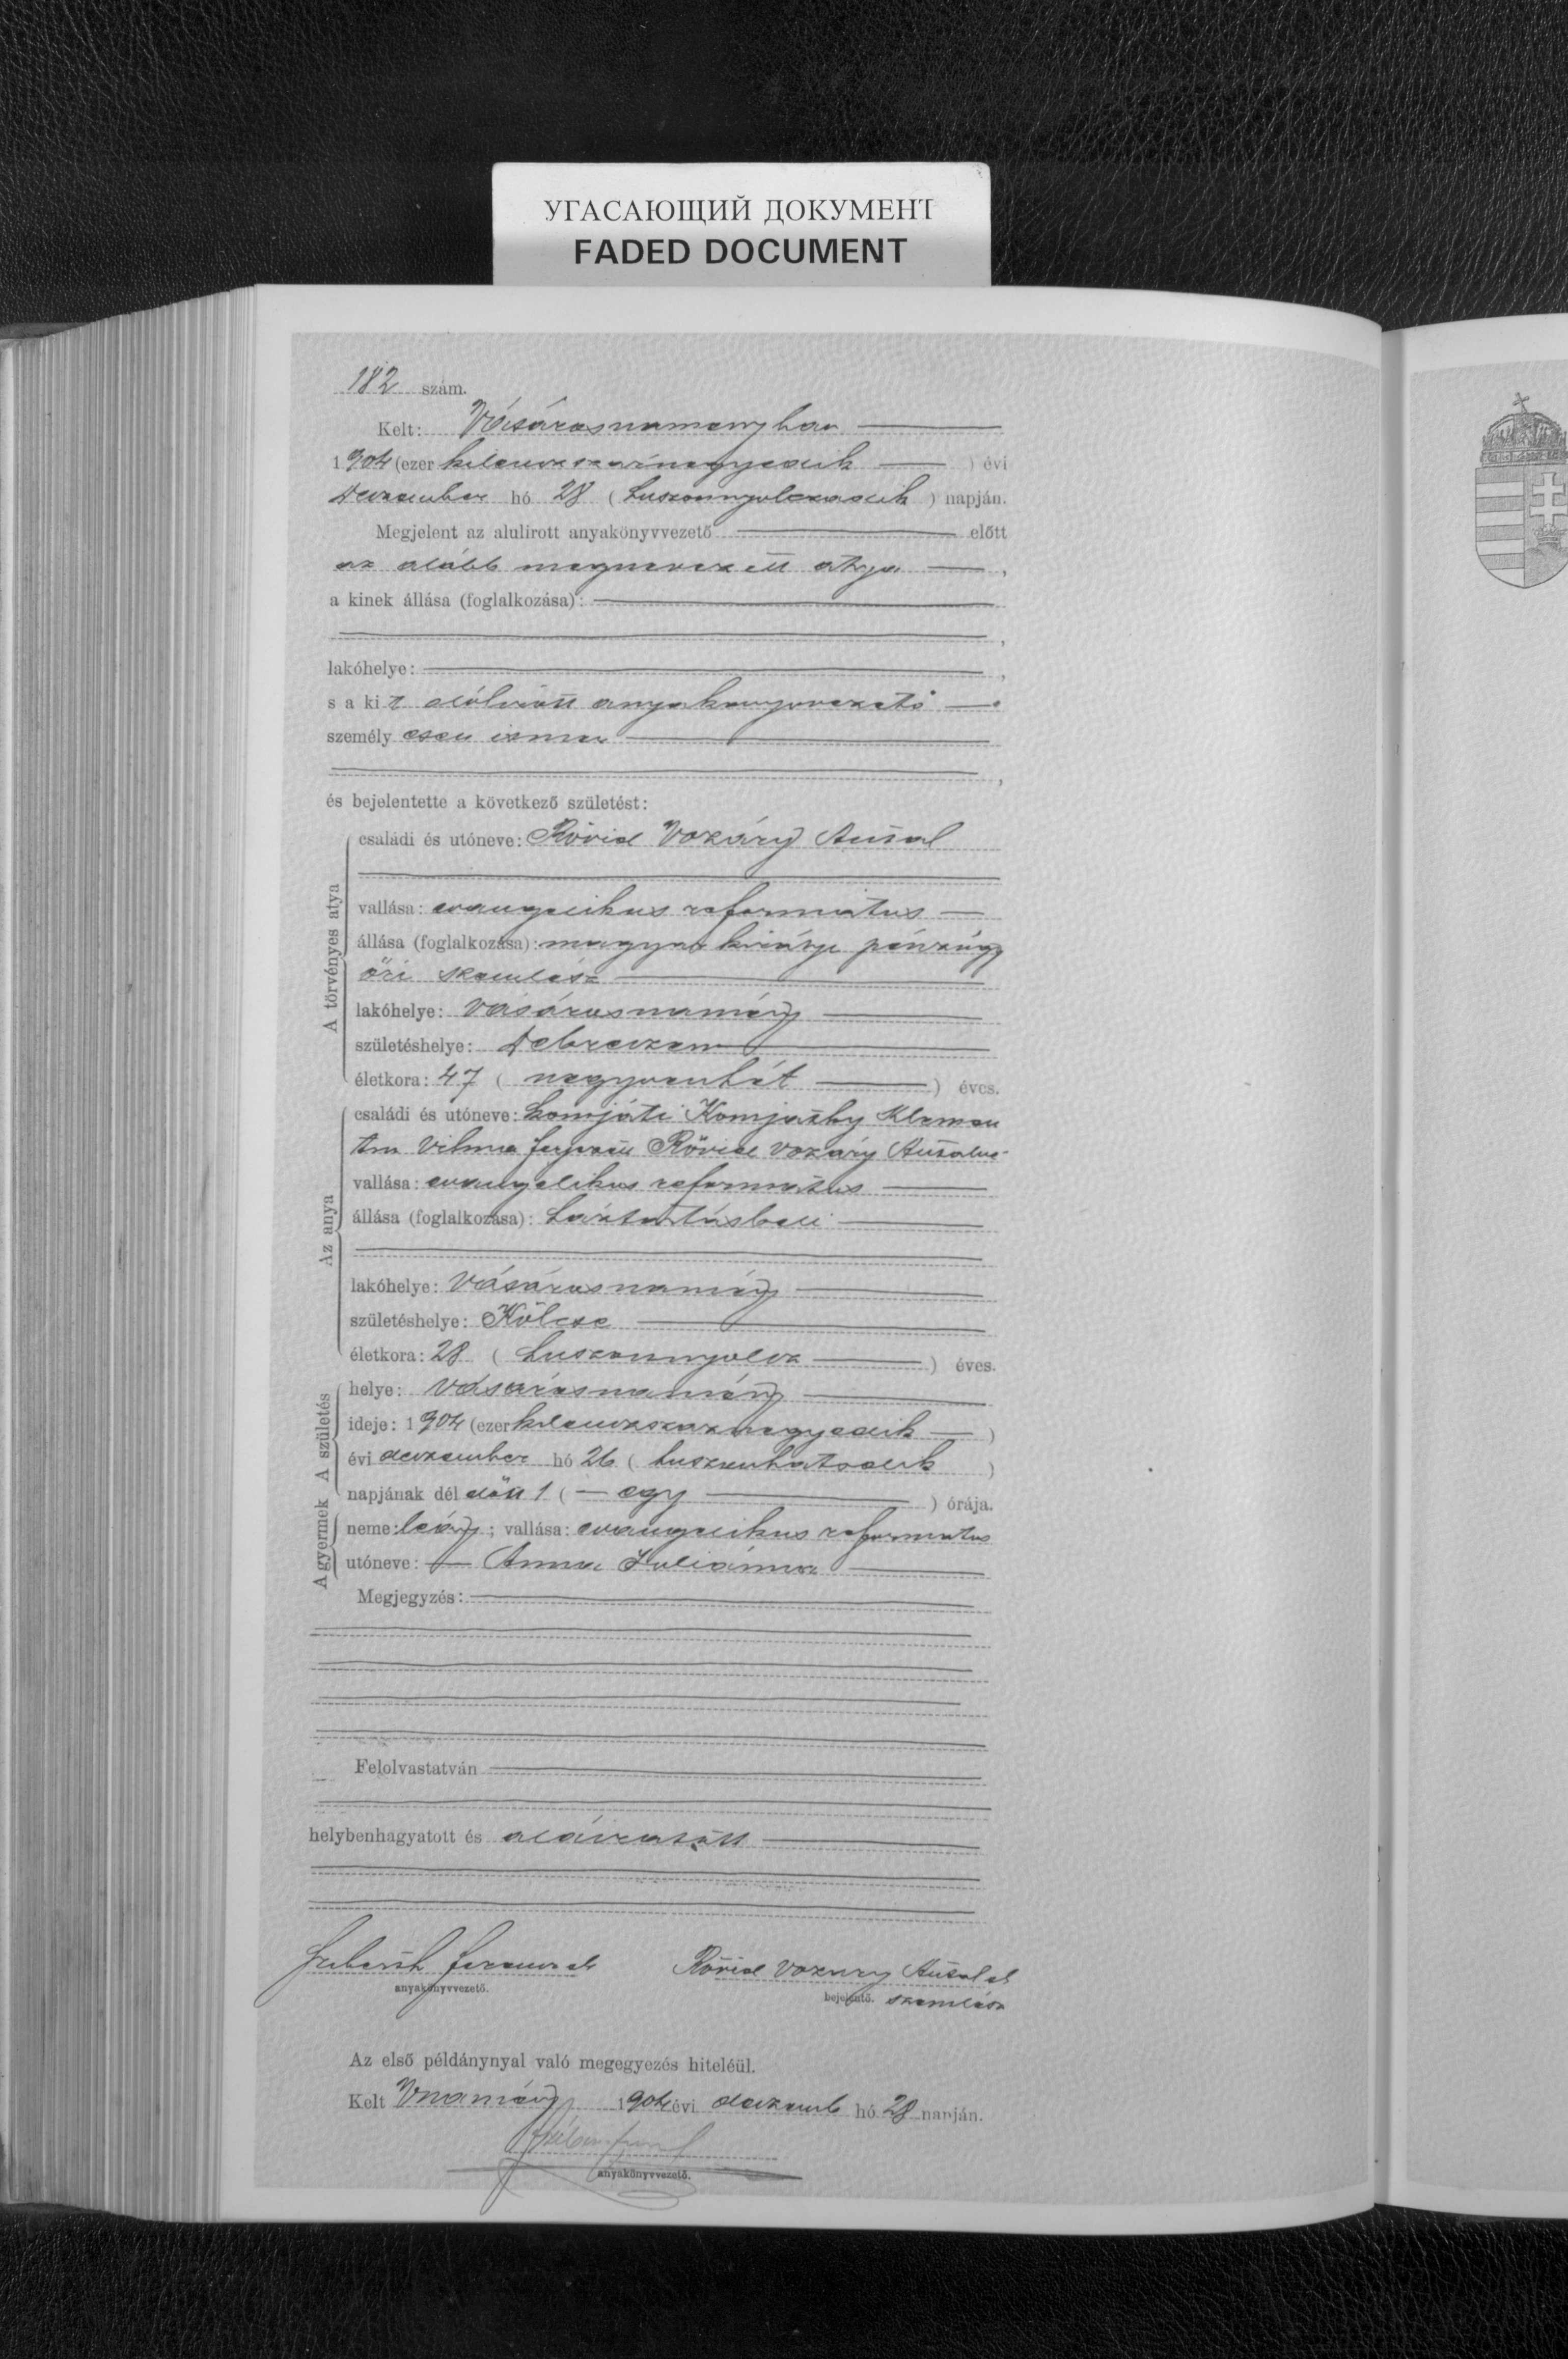 УГАСАЮЩИЙ ДОКУМЕНТ
FADED DOCUMENT
182 szám.
Kelt: Vásárosnaményban
1904 (ezer kilenczszáznegyedik) évi
deczember hó 28 (huszonnyolczadik) napján.
Megjelent az alulirott anyakönyvvezető előtt
az alább megnevezett atya,
a kinek állása (foglalkozása):
lakóhelye:
s a kit alólirott anyakönyvvezető
személyesen ismer
és bejelentette a következő születést:
A törvényes atya
családi és utóneve: Rövid Vozáry Antal
vallása: evangelikus református
állása (foglalkozása): magyar királyi pénzügy
őri szemlész
lakóhelye: Vásárosnamény
születéshelye: Debreczen
életkora: 47 (negyvenhét) éves.
Az anya
családi és utóneve: komjáti Komjáthy Klemen
tin Vilma férjezett Rövid Vozáry Antalné
vallása: evangelikus református
állása (foglalkozása): háztartásbeli
lakóhelye: Vásárosnamény
születéshelye: Kölcse
életkora: 28 (huszonnyolcz) éves.
A születés
helye: Vásárosnamény
ideje: 1904 (ezer kilenczszáznegyedik)
évi deczember hó 26 (huszonhatodik)
napjának dél előtt 1 (egy) órája.
A gyermek
neme: leány; vallása: evangelikus református
utóneve: Anna Juliánna
Megjegyzés:
Felolvastatván
helybenhagyatott és aláiratott
Ferencz
Rövid Vozáry Antal
anyakönyvvezető.
bejelentő. szemlész
Az első példánynyal való megegyezés hiteléül.
Kelt Vnamény 1904 évi deczemb hó 28 napján.
anyakönyvvezető.